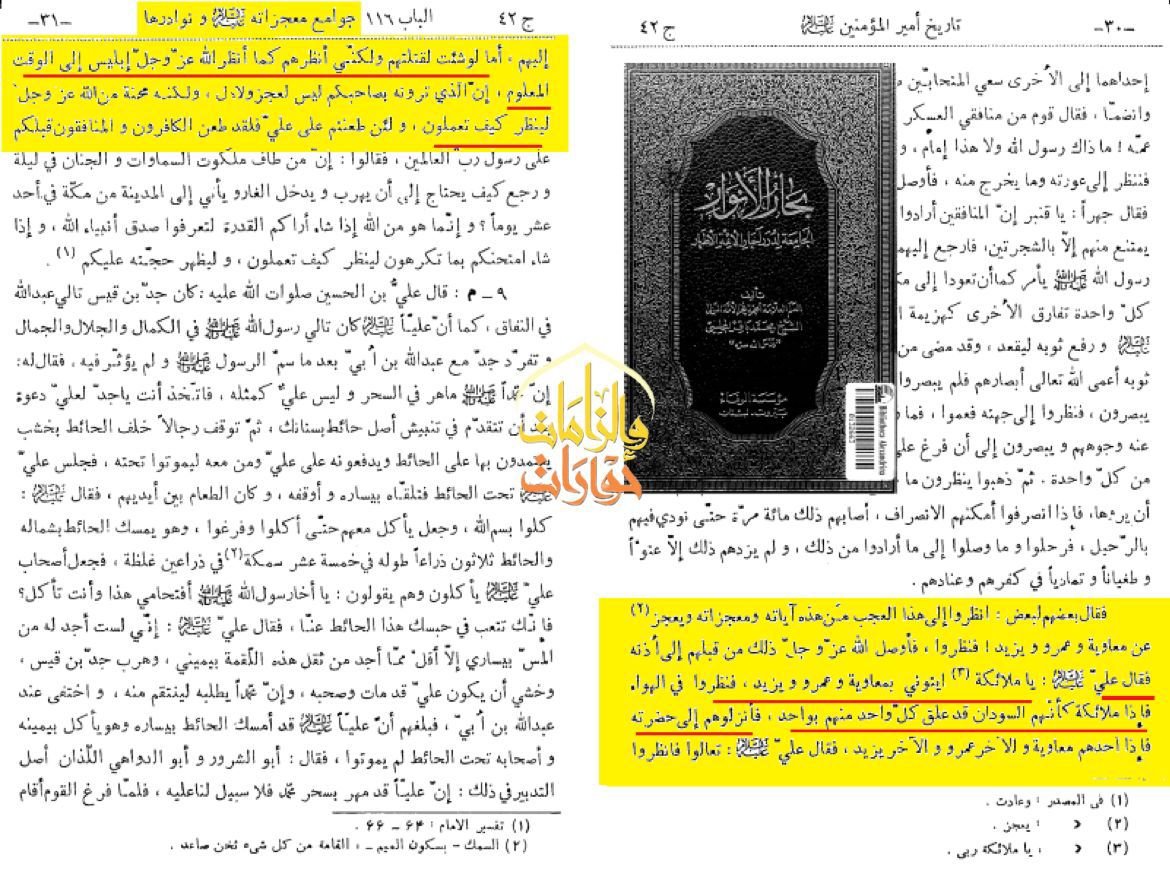 -٣٠-
تاريخ أمير المؤمنين عليه السلام
ج ٤٢
إحداهما إلى الأخرى سعي المتحابين
وانضمّا ، فقال قوم من منافقي العسكر
عمّه ! ما ذاك رسول الله ولا هذا إمام ، و
فننظر إلى عورته وما يخرج منه ، فأوصل
فقال جهراً : يا قنبر إنّ المنافقين أرادوا
يمتنع منهم إلّا بالشجرتين، فارجع إليهم
رسول الله صلى الله عليه وآله يأمركما أن تعودا إلى
كلّ واحدة تفارق الأخرى كهزيمة
عليه السلام و رفع ثوبه ليقعد ، وقد مضى من
ثوبه أعمى الله تعالى أبصارهم فلم يبصروا
يبصرون ، فنظروا إلى جهته فعموا ، فما
عنه وجوههم و يبصرون إلى أن فرغ
من كلّ واحدة . ثمّ ذهبوا ينظرون ما
أن يروها، فإذا انصرفوا أمكنهم الانصراف ، أصابهم ذلك مائة مرّة حتّى نودي فيهم
بالرّحيل ، فرحلوا و ما وصلوا إلى ما أرادوا من ذلك ، و لم يزدهم ذلك إلّا عتوّاً
و طغياناً و تمادياً في كفرهم وعنادهم .
فقال بعضهم لبعض : انظروا إلى هذا العجب من هذه آياته ومعجزاته ويعجز (٢)
عن معاوية و عمرو و يزيد ! فنظروا ، فأوصل الله عزّ وجلّ ذلك من قبلهم إلى أذنه
فقال عليّ عليه السلام : يا ملائكة (٣) ايتوني بمعاوية و عمرو و يزيد ، فنظروا في الهواء
فإذا ملائكة كأنّهم السودان قد علق كلّ واحد منهم بواحد ، فأنزلوهم إلى حضرته
فإذا أحدهم معاوية و الآخر عمرو و الآخر يزيد ، فقال عليّ عليه السلام : تعالوا فانظروا
(١) في المصدر : وعادت .
(٢) &lt; : يعجز .
(٣) &lt; : يا ملائكة ربى .
بحار الأنوار
الجامعة لدرر أخبار الأئمة الأطهار
تأليف
مؤسسة الوفاء
بيروت - لبنان
Bibliotheca Alexandrina
والزامات
حوارات
ج ٤٢
الباب ١١٦ جوامع معجزاته عليه السلام و نوادرها
-٣١-
إليهم ، أما لو شئت لقتلتهم ولكنّي أنظرهم كما أنظر الله عزّ وجلّ إبليس إلى الوقت
المعلوم ، إنّ الّذي ترونه بصاحبكم ليس لعجز ولا ذلّ ، ولكنّه محنة من الله عزّ وجلّ
لينظر كيف تعملون ، و لئن طعنتم على عليّ فلقد طعن الكافرون و المنافقون قبلكم
على رسول ربّ العالمين ، فقالوا : إنّ من طاف ملكوت السماوات و الجنان في ليلة
و رجع كيف يحتاج إلى أن يهرب و يدخل الغار و يأتي إلى المدينة من مكّة في أحد
عشر يوماً ؟ و إنّما هو من الله إذا شاء أراكم القدرة لتعرفوا صدق أنبياء الله ، و إذا
شاء امتحنكم بما تكرهون لينظر كيف تعملون ، و ليظهر حجّته عليكم (١) .
٩ - م : قال عليّ بن الحسين صلوات الله عليه : كان جدّ بن قيس تالي عبدالله
في النفاق ، كما أنّ عليّاً عليه السلام كان تالي رسول الله صلى الله عليه وآله في الكمال والجلال والجمال
و تفرّد جدّ مع عبدالله بن أُبيّ بعد ما سمّ الرسول صلى الله عليه وآله و لم يؤثّر فيه ، فقال له:
إنّ محمّداً صلى الله عليه وآله ماهر في السحر و ليس عليّ كمثله ، فاتّخذ أنت يا جدّ لعليّ دعوة
بعد أن تتقدّم في تنبيش أصل حائط بستانك ، ثمّ توقف رجالاً خلف الحائط بخشب
يعتمدون بها على الحائط ويدفعونه على عليّ ومن معه ليموتوا تحته ، فجلس عليّ
عليه السلام تحت الحائط فتلقّاه بيساره و أوقفه ، و كان الطعام بين أيديهم ، فقال عليه السلام :
كلوا بسم الله ، وجعل يأكل معهم حتّى أكلوا وفرغوا ، وهو يمسك الحائط بشماله
والحائط ثلاثون ذراعاً طوله في خمسة عشر سمكه (٢) في ذراعين غلظة ، فجعل أصحاب
عليّ عليه السلام يأكلون وهم يقولون : يا أخا رسول الله صلى الله عليه وآله أفتحامي هذا وأنت تأكل؟
فإنّك تتعب في حبسك هذا الحائط عنّا ، فقال عليّ عليه السلام : إنّي لست أجد له من
المسّ بيساري إلّا أقلّ ممّا أجد من ثقل هذه اللّقمة بيميني ، وهرب جدّ بن قيس ،
وخشي أن يكون عليّ قد مات وصحبه ، وإنّ محمّداً يطلبه لينتقم منه ، و اختفى عند
عبدالله بن أُبيّ ، فبلغهم أنّ عليّاً عليه السلام قد أمسك الحائط بيساره وهو يأكل بيمينه
و أصحابه تحت الحائط لم يموتوا ، فقال : أبو الشرور و أبو الدواهي اللّذان أصل
التدبير في ذلك : إنّ عليّاً قد مهر بسحر محمّد فلا سبيل لنا عليه ، فلمّا فرغ القوم أقام
(١) تفسير الامام : ٦٤ - ٦٦ .
(٢) السمك - بسكون الميم - : القامة من كل شىء ثخن صاعد .